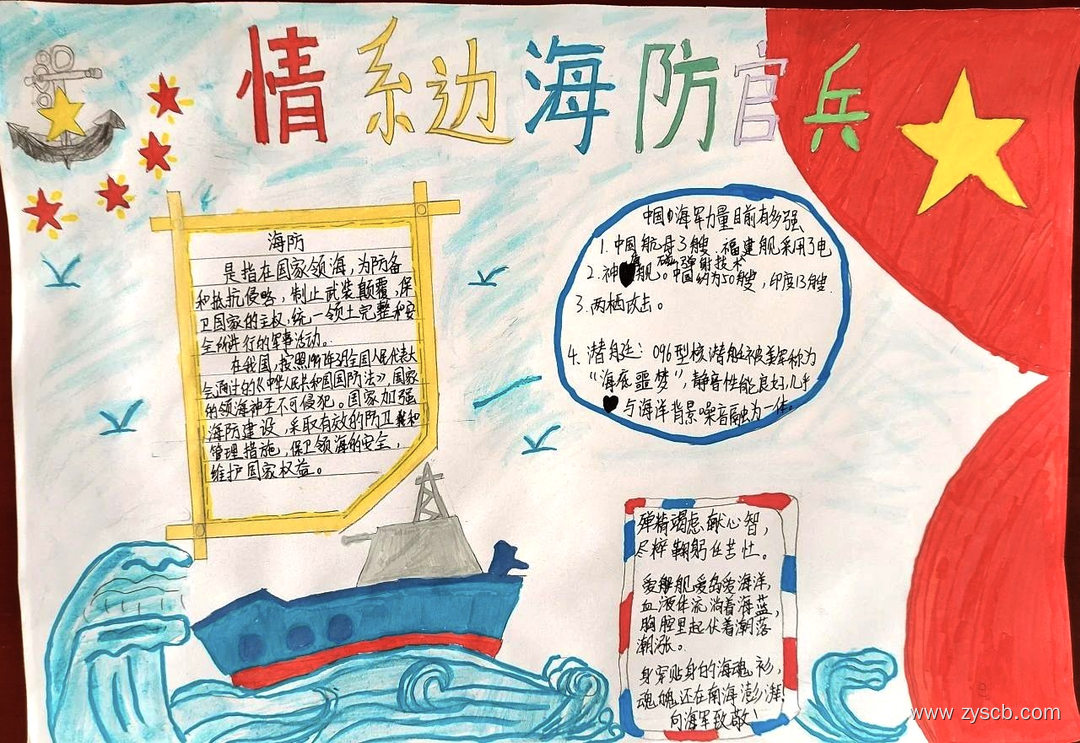 情系边海防官兵
海防
是指在国家领海，为防备
和抵抗侵略，制止武装颠覆，保
卫国家的主权，统一领土完整和安
全所进行的军事活动。
在我国，按照1997年3月全国人民代表大
会通过的《中华人民共和国国防法》，国家
的领海神圣不可侵犯。国家加强
海防建设，采取有效的防卫和
管理措施，保卫领海的安全，
维护国家权益。
中国海军力量目前有多强
1. 中国航母3艘，福建舰采用了电
磁弹射技术
2. 神盾舰。中国约为50艘，印度13艘.
3. 两栖攻击。
4. 潜艇：096型核潜艇被美军称为
“海底噩梦”，静音性能良好，几乎
与海洋背景噪音融为一体。
殚精竭虑献心智，
尽粹鞠躬任苦忙。
爱舰爱岛爱海洋，
血液里流淌着海蓝，
胸腔里起伏着潮落
潮涨。
身穿贴身的海魂衫，
魂魄还在南海澎湃！
向海军致敬！
www.zyscb.com